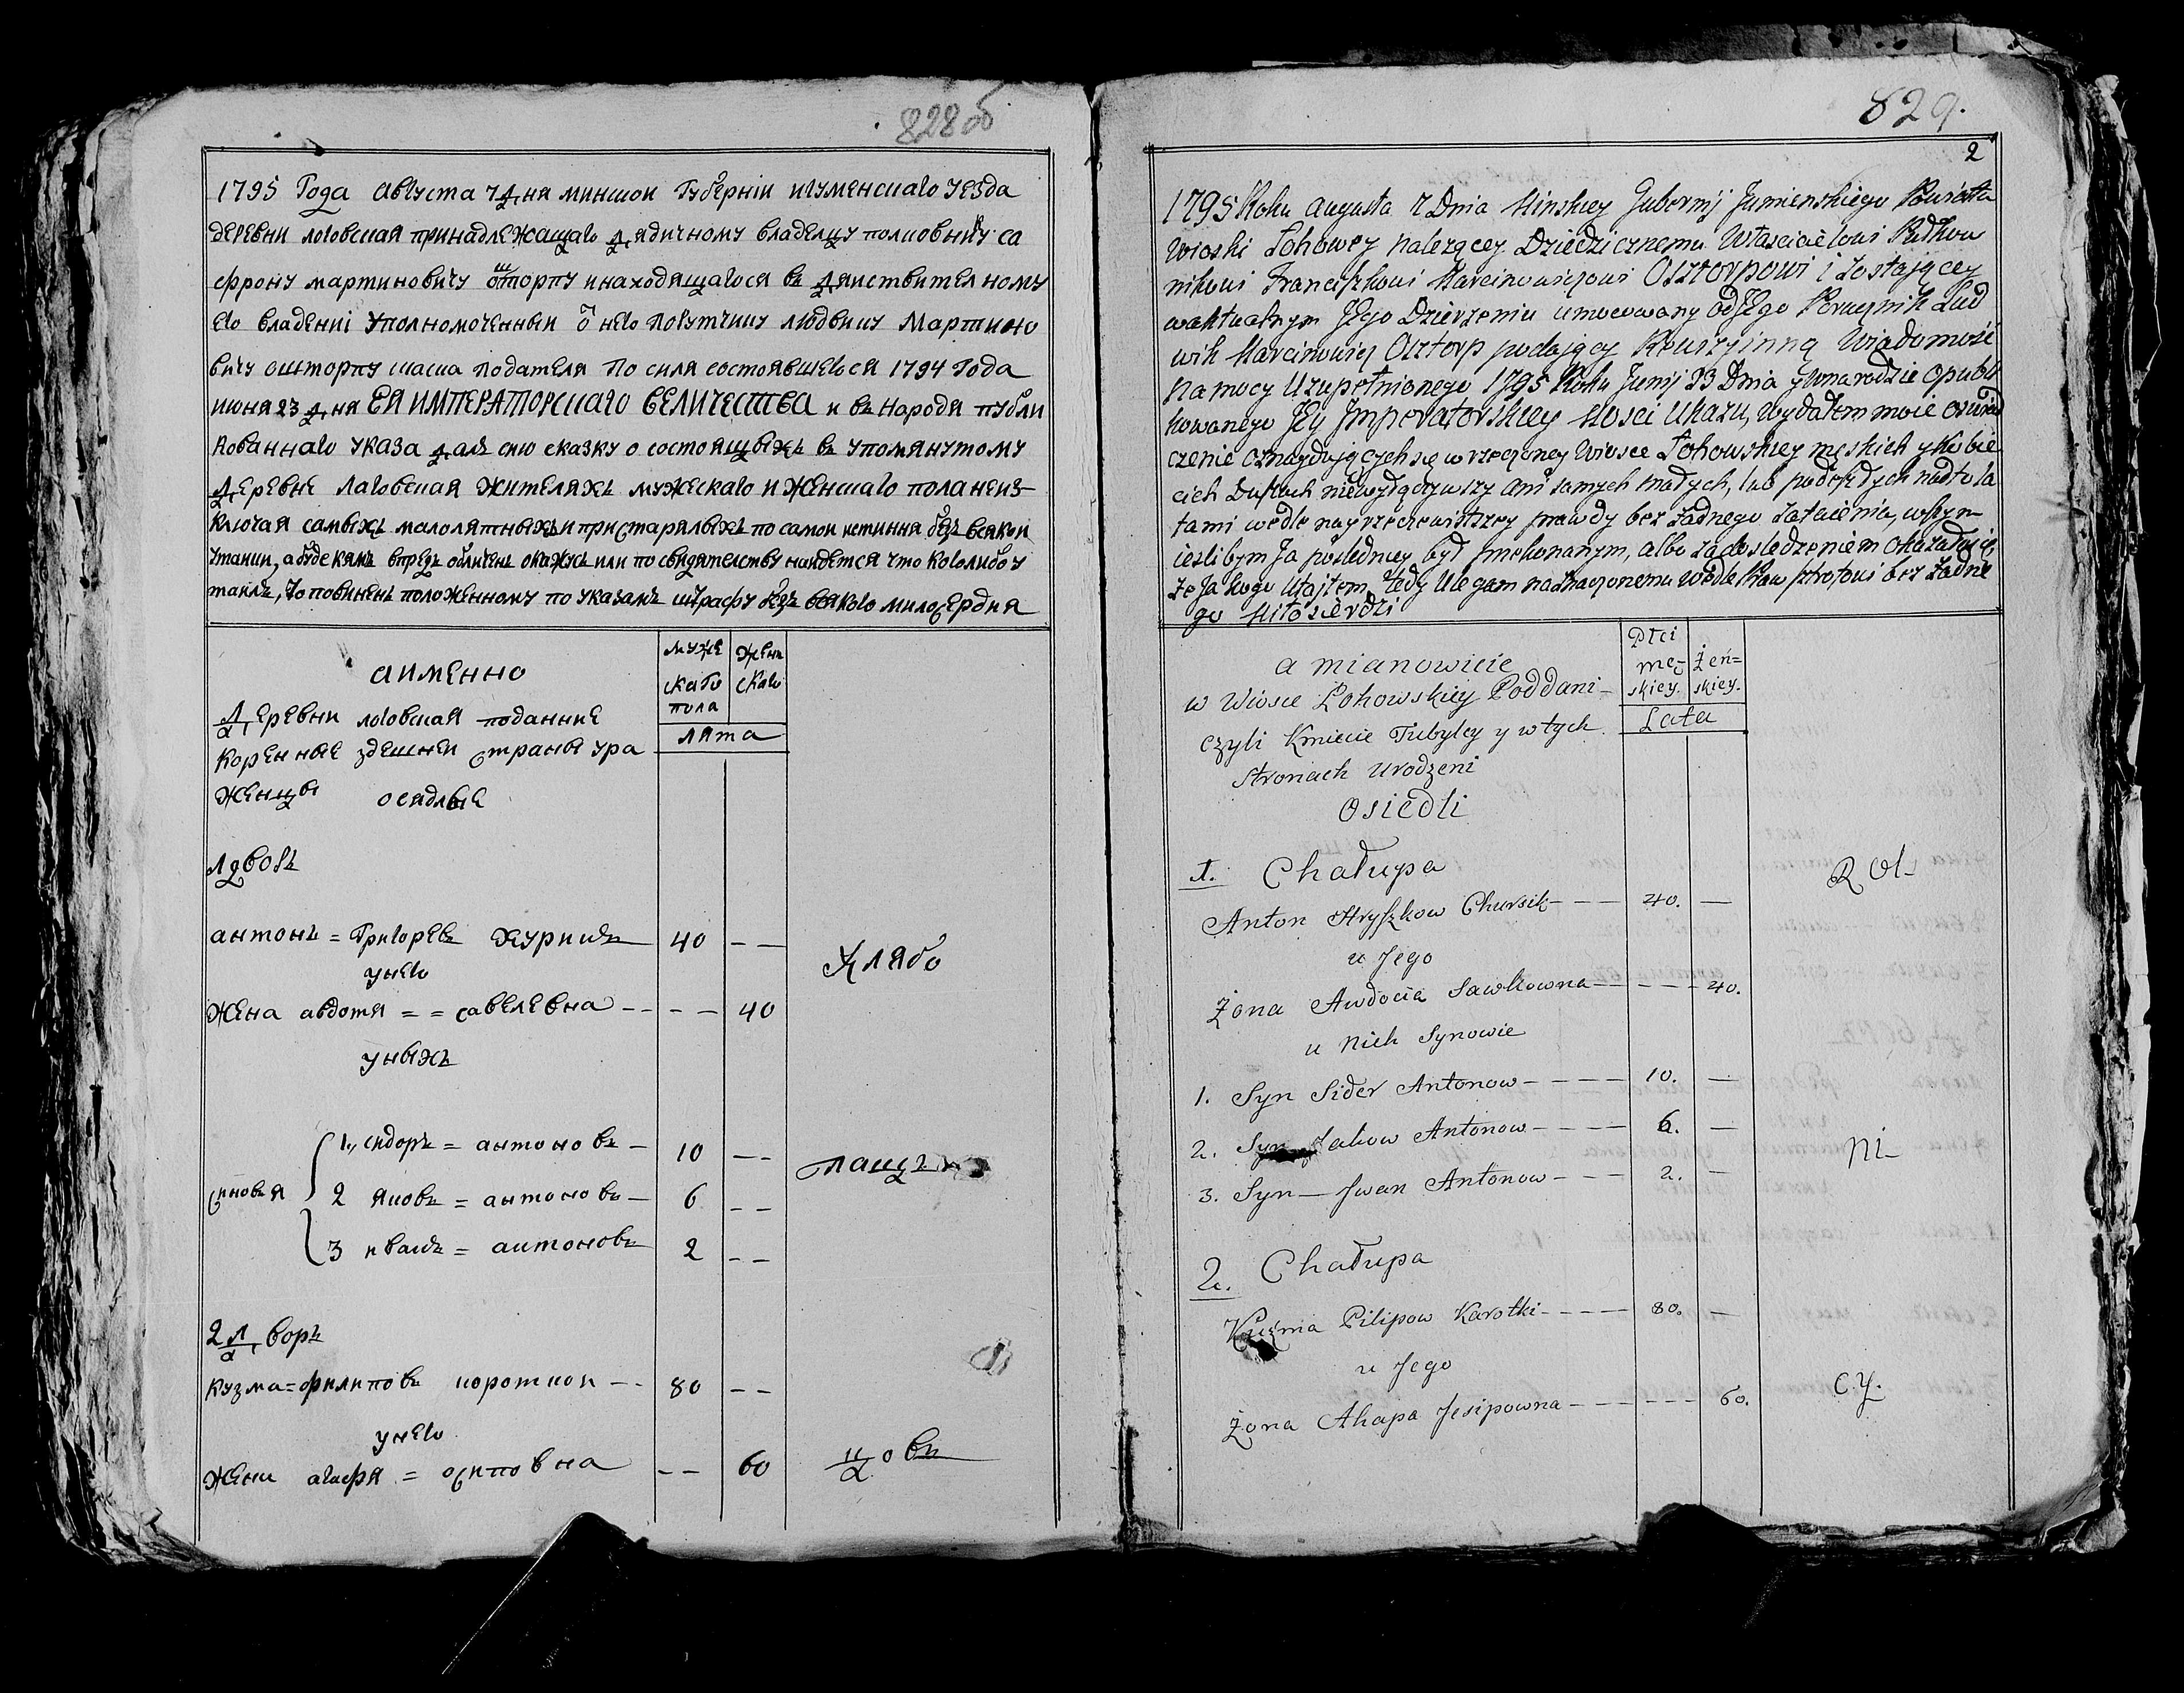 828об
1795 Года августа 7 дня минской Губернiи игуменскаго уезда
деревни логовская принадлежащаго дядичному владелцу полковнику са
фрону мартиновичу ошторпу и находящагося въ дяиствителному
его владенiі уполномоченныи ѿ него порутчику людвику Мартино
вичу ошторпу снаша подателя По силя состоявшегося 1794 года
июня 23 дня ЕЯ ИМПЕРАТОРСКАГО ВЕЛИЧЕСТВА и въ народя публи
кованнаго указа далъ сию сказку о состоящыхъ въ упомянутому
деревне лаговская жителяхъ мужескаго и женскаго пола неиз
ключая самыхъ малолятныхъ и пристарялыхъ по самои истиння безъ всякои
утаики, а буде кямъ впредъ обличенъ окажусь или по свидятелству наидется что коголибо у
таилъ, То повиненъ положенному по указамъ штрафу безъ всякого милосердия
аименно
муже
скаго
пола
женъ
скаго
лята
Деревни логовская поданние
коренные здешнеи страны ура
женцы осядлые
1 дворъ
антонъ = Григоревъ журникъ 40 – –
унего
жена авдотя = = савелевна – – – – 40
уныхъ
сыновья
1, сидоръ = антоновъ – 10 – –
2 яковъ = антоновъ – 6 – –
3 иванъ = антоновъ 2 – –
хлябо
пашцъ
2 дворъ
кузма = филиповъ короткои – – 80 – –
унего
жени агафя = осиповна – – 60
цовъ
829.
2
1795 Roku Augusta 7 Dnia Minskiey Gubernij Jumienskiego Powiatu
Wioski Łohowey należącey Dziedzicznemu Własciciełowi Pułkow
nikowi Franciszkowi Marcinowiczowi Osztorpowi i zostającey
waktualnym Jego Dzierżeniu umocowany od Jego Porucznik Lud
wik Marcinowicz Osztorp podający Rewizyinną Wiadomość
Na mocy Uzupełnionego 1795 Roku Junij 23 Dnia y w narodzie opubli
kowanego Jey Imperatorskiey Mosci Ukazu, wydałem moie oswiad
czenie o znayduiących się w rzeczoney Wiosce Łohowskiey męskich y kobie
cich Duszach niewyłączywszy ani samych małych, lub podeszłych nadto la
tami wedle nayrzeczewistszey prawdy bez żadnego zataienia, wczym
iesli bym Ja poslednicy był przekonanym, albo za doslędzeniem okazało się
że Ja kogo utaiłem, tedy Ulegam naznaczonemu wedle Praw sztrafowi bez żadne
go Miłosierdzi
a mianowicie
w Wiosce Łohowskiey Poddani
czyli Kmiecie Tubylcy y w tych
stronach urodzeni
osiedli
Płci
mę-
skiey.
żeń=
skiey.
Lata
1. Chałupa
Anton Hryszkow Chursik – – – 40. –
u Jego
Żona Awdocia Sawkowna – – – – – 40.
u nich Synowie
1. Syn Sider Antonow – – – – 10. –
2. Syn Jakow Antonow – – – – 6. –
3. Syn – Jwan Antonow – – – 2. –
2. Chałupa
Kuźma Pilipow Karotki – – – – 80. –
u Jego
Żona Ahapa Jesipowna – – – – – – 60.
Rol–
ni–
cy.